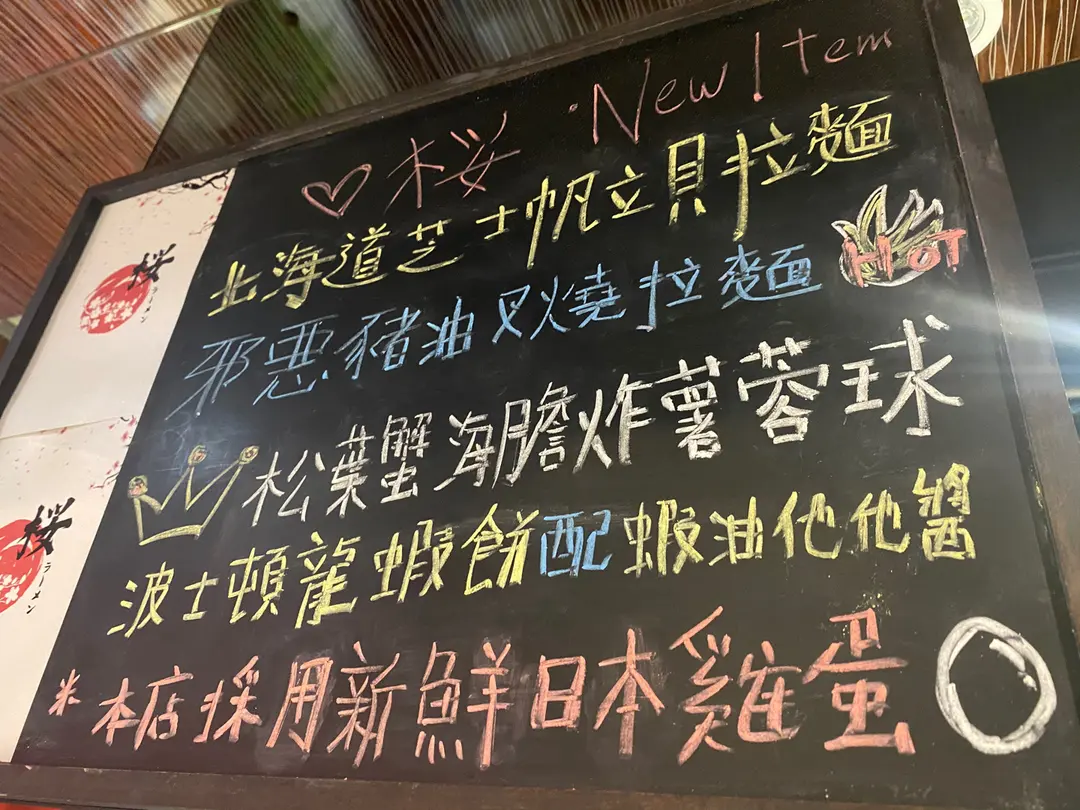 桜 New Item
北海道芝士帆立貝拉麵
HOT
邪悪豬油叉燒拉麵
松葉蟹海膽炸薯蓉球
波士頓龍蝦餅配蝦油他他醬
*本店採用新鮮日本雞蛋
桜
ラーメン
桜
ラーメン